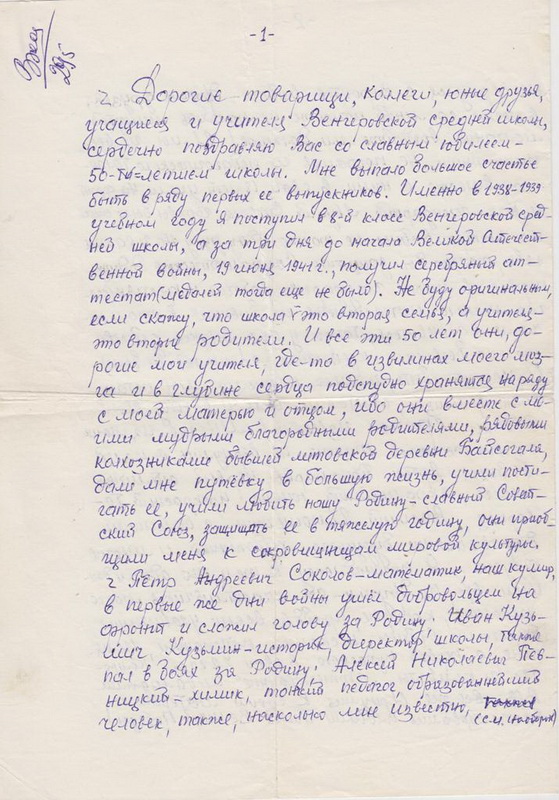 -1-
Вжец
295
Дорогие товарищи, коллеги, юные друзья,
учащиеся и учителя Венгеровской средней школы,
сердечно поздравляю Вас со славным юбилеем-
50-ти=летием школы. Мне выпало большое счастье
быть в ряду первых ее выпускников. Именно в 1938-1939
учебном году я поступил в 8-й класс Венгеровской сред-
ней школы, а за три дня до начала Великой Отечест-
венной войны, 19 июня 1941 г., получил серебряный ат-
тестат (медалей тогда еще не было). Не буду оригинальным,
если скажу, что школа - это вторая семья, а учителя-
это вторые родители. И все эти 50 лет они, до-
рогие мои учителя, где-то в извилинах моего моз-
га и в глубине сердца подспудно хранятся наряду
с моей матерью и отцом, ибо они вместе с мо-
ими мудрыми благородными родителями, рядовыми
колхозниками бывшей литовской деревни Байсогала,
дали мне путёвку в большую жизнь, учили пости-
гать ее, учили любить нашу Родину-славный Совет-
ский Союз, защищать ее в тяжелую годину, они приоб-
щили меня к сокровищницам мировой культуры.
Пётр Андреевич Соколов-математик, наш кумир,
в первые же дни войны ушел добровольцем на
фронт и сложил голову за Родину. Иван Кузь-
мич Кузьмин-историк, директор школы, также
пал в боях за Родину. Алексей Николаевич Пев-
ницкий-химик, тонкий педагог, образованнейший
человек, также, насколько мне известно, также
(см. на обороте)